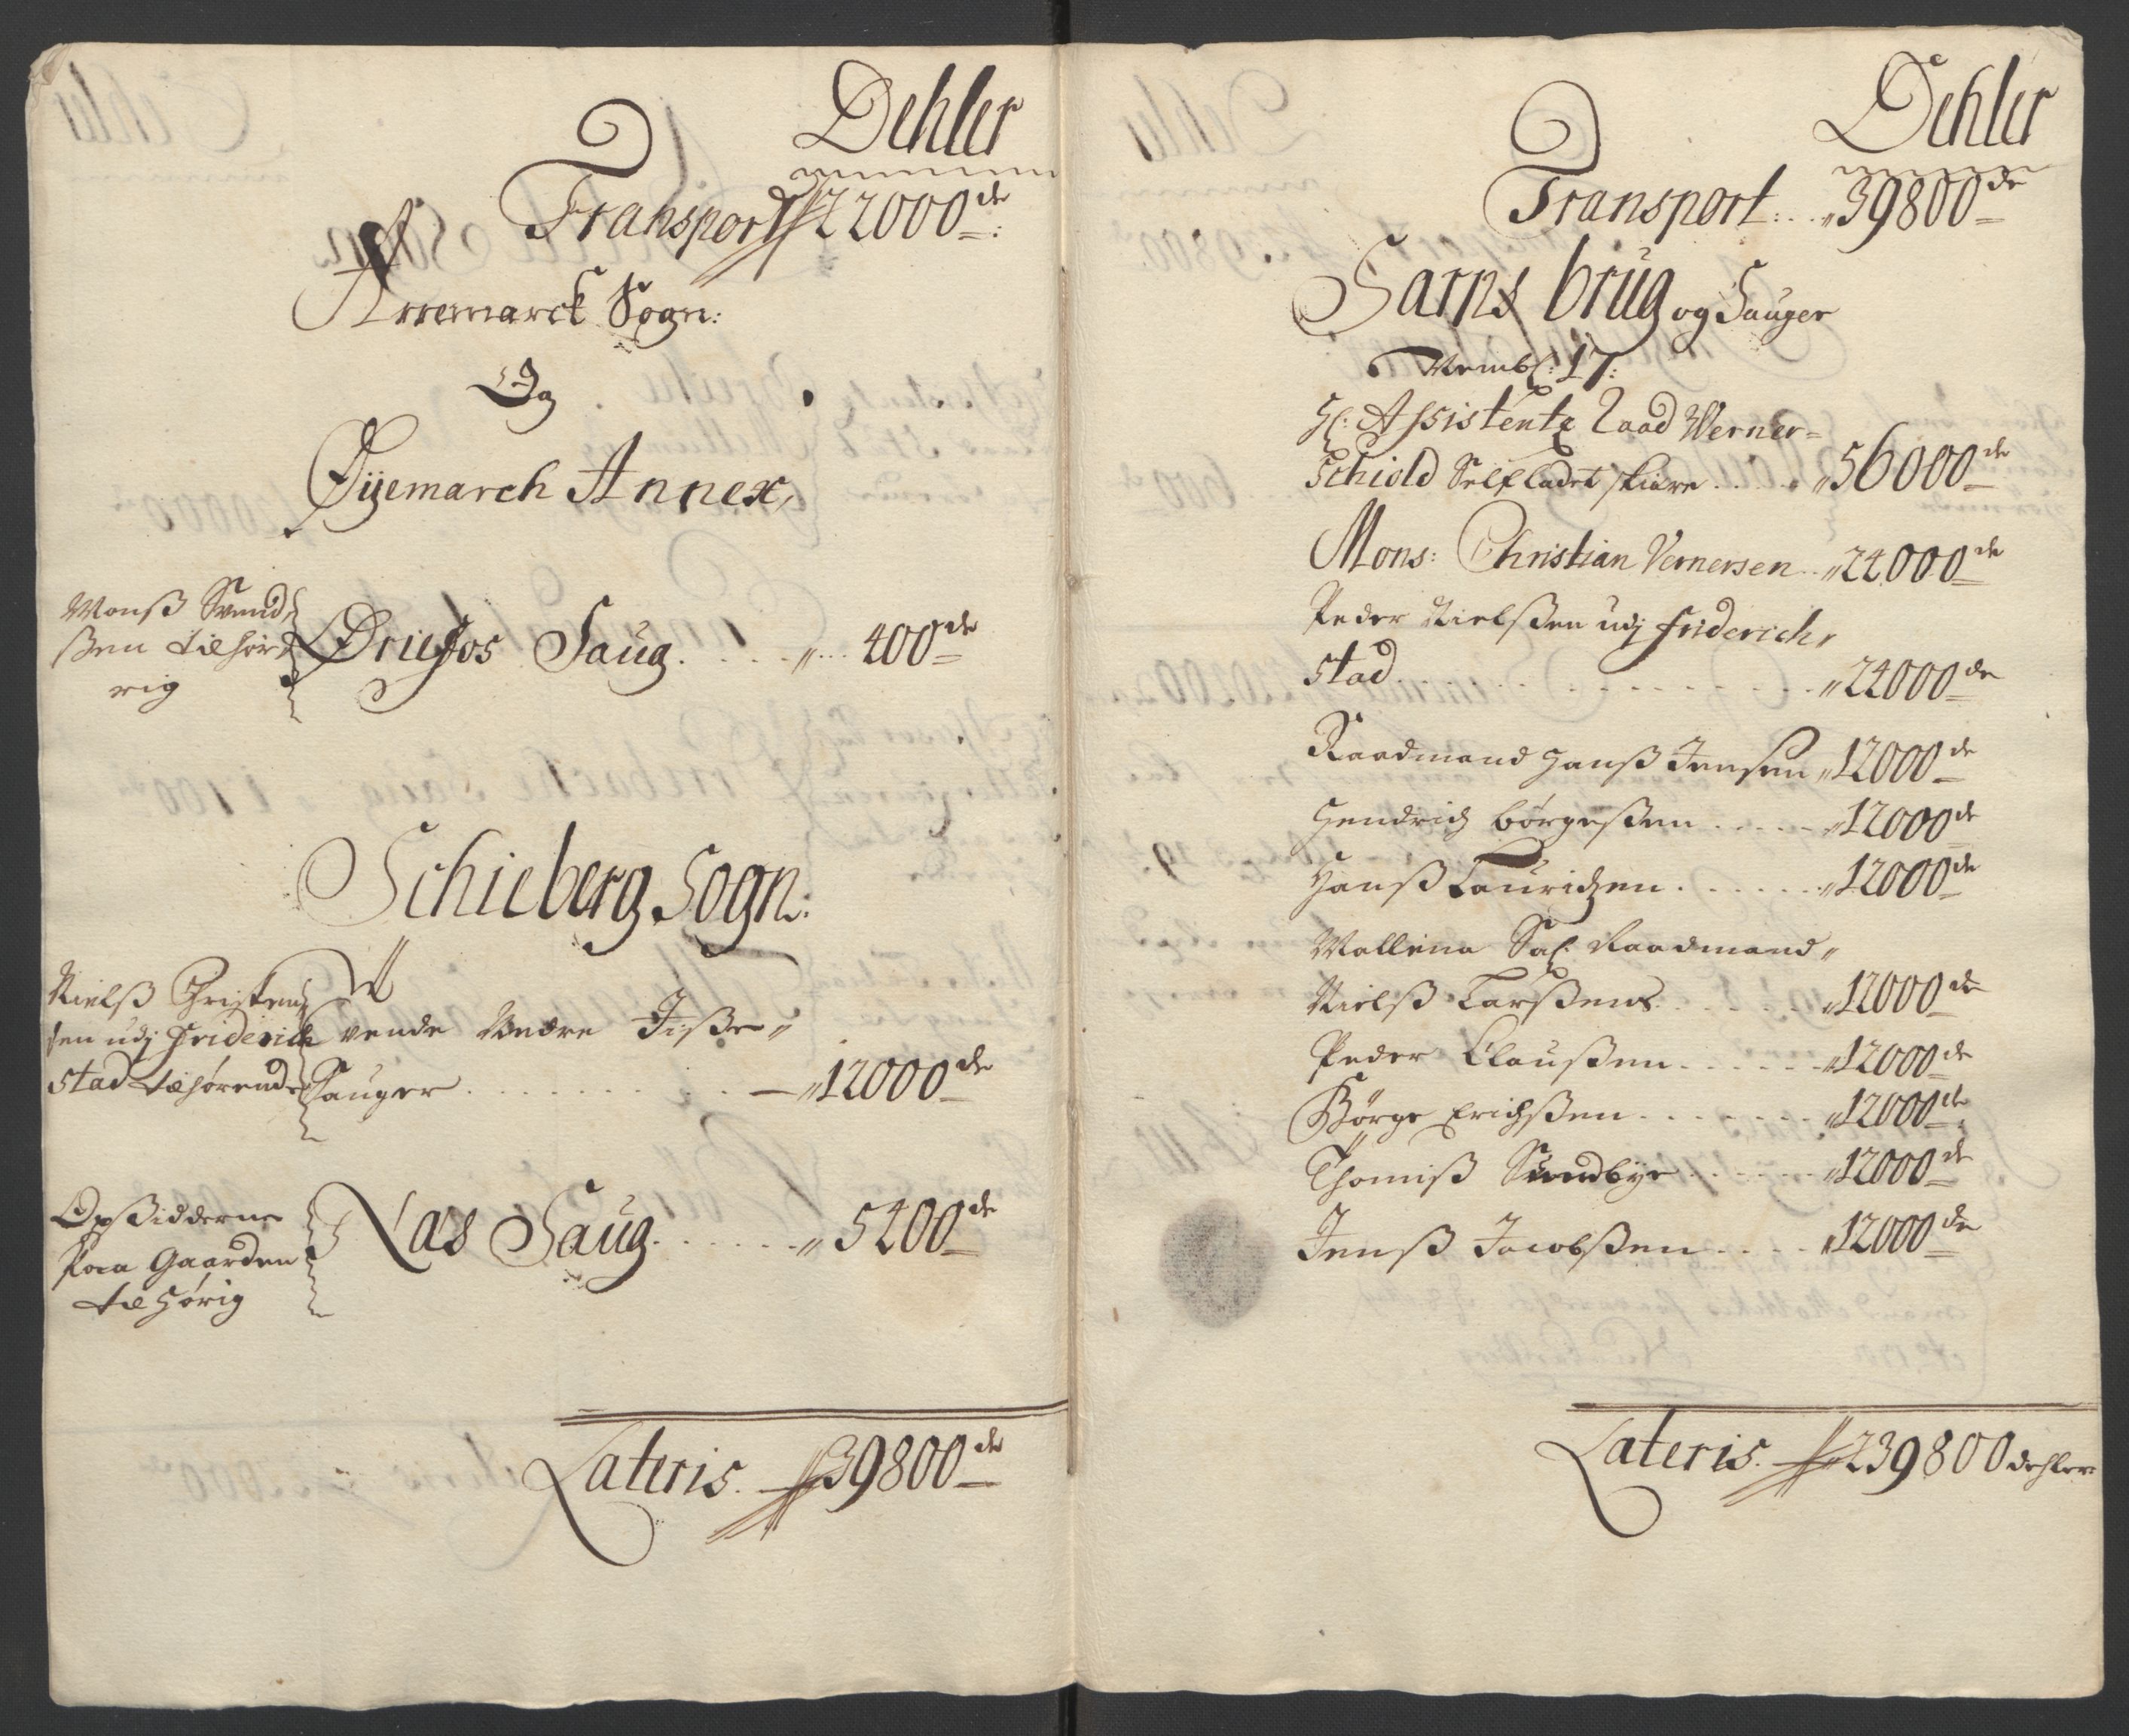 Dehler
Transport 22000 de
Arremarck Sogn:
Og
Øÿemarch Annex,
Monß Svend,
ßen tilhør,
rig
Driefos Saug . . . . 400 de
Schieberg Sogn:
Nielß Christen,
sen udj Friderich
stad tilhørende
vende Nedre Tißer,
Sauger . . . . . . . . . 12000 de
Opßidderne
paa Gaarden
til hørig
Naes Saug . . . . . . . 5400 de
Lateris. 39800 de
Dehler
Transport: . . 39800 de
Sarps brug og Sauger
Nembl: 17:
Hl: Assistentz Raad Werner=
schiold Self ladet skiere . . . . 56000 de
Mons: Christian Vernersen . . 24000 de
Peder Nielßen udj Friderich,
stad . . . . . . . . . . . . 24000 de
Raadmand Hanß Jensen 12000 de
Hendrich Børgeßen . . . . . 12000 de
Hanß Lauridzen . . . . . . . 12000 de
Mallena Sal. Raadmand,
Nielß Larßens . . . . . . 12000 de
Peder Claußen . . . . . . 12000 de
Børge Erichßen . . . . . . . 12000 de
Thomiß Sundbye . . . . . . 12000 de
Jenß Jacobßen . . . . 12000 de
Lateris. 239800 dehler